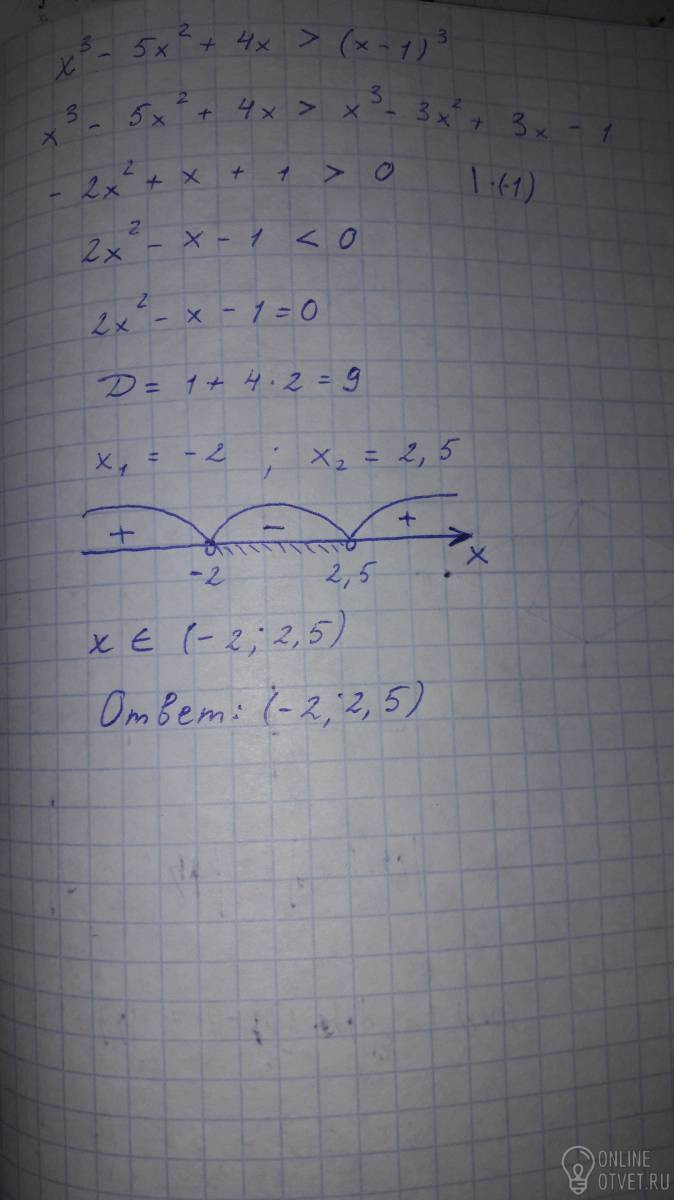 x³ - 5x² + 4x > (x - 1)³
x³ - 5x² + 4x > x³ - 3x² + 3x - 1
- 2x² + x + 1 > 0 | · (-1)
2x² - x - 1 < 0
2x² - x - 1 = 0
D = 1 + 4 · 2 = 9
x₁ = -2 ; x₂ = 2,5
+ - +
-2 2,5 x
x ∈ (-2; 2,5)
Ответ: (-2; 2,5)
ONLINE
OTVET.RU